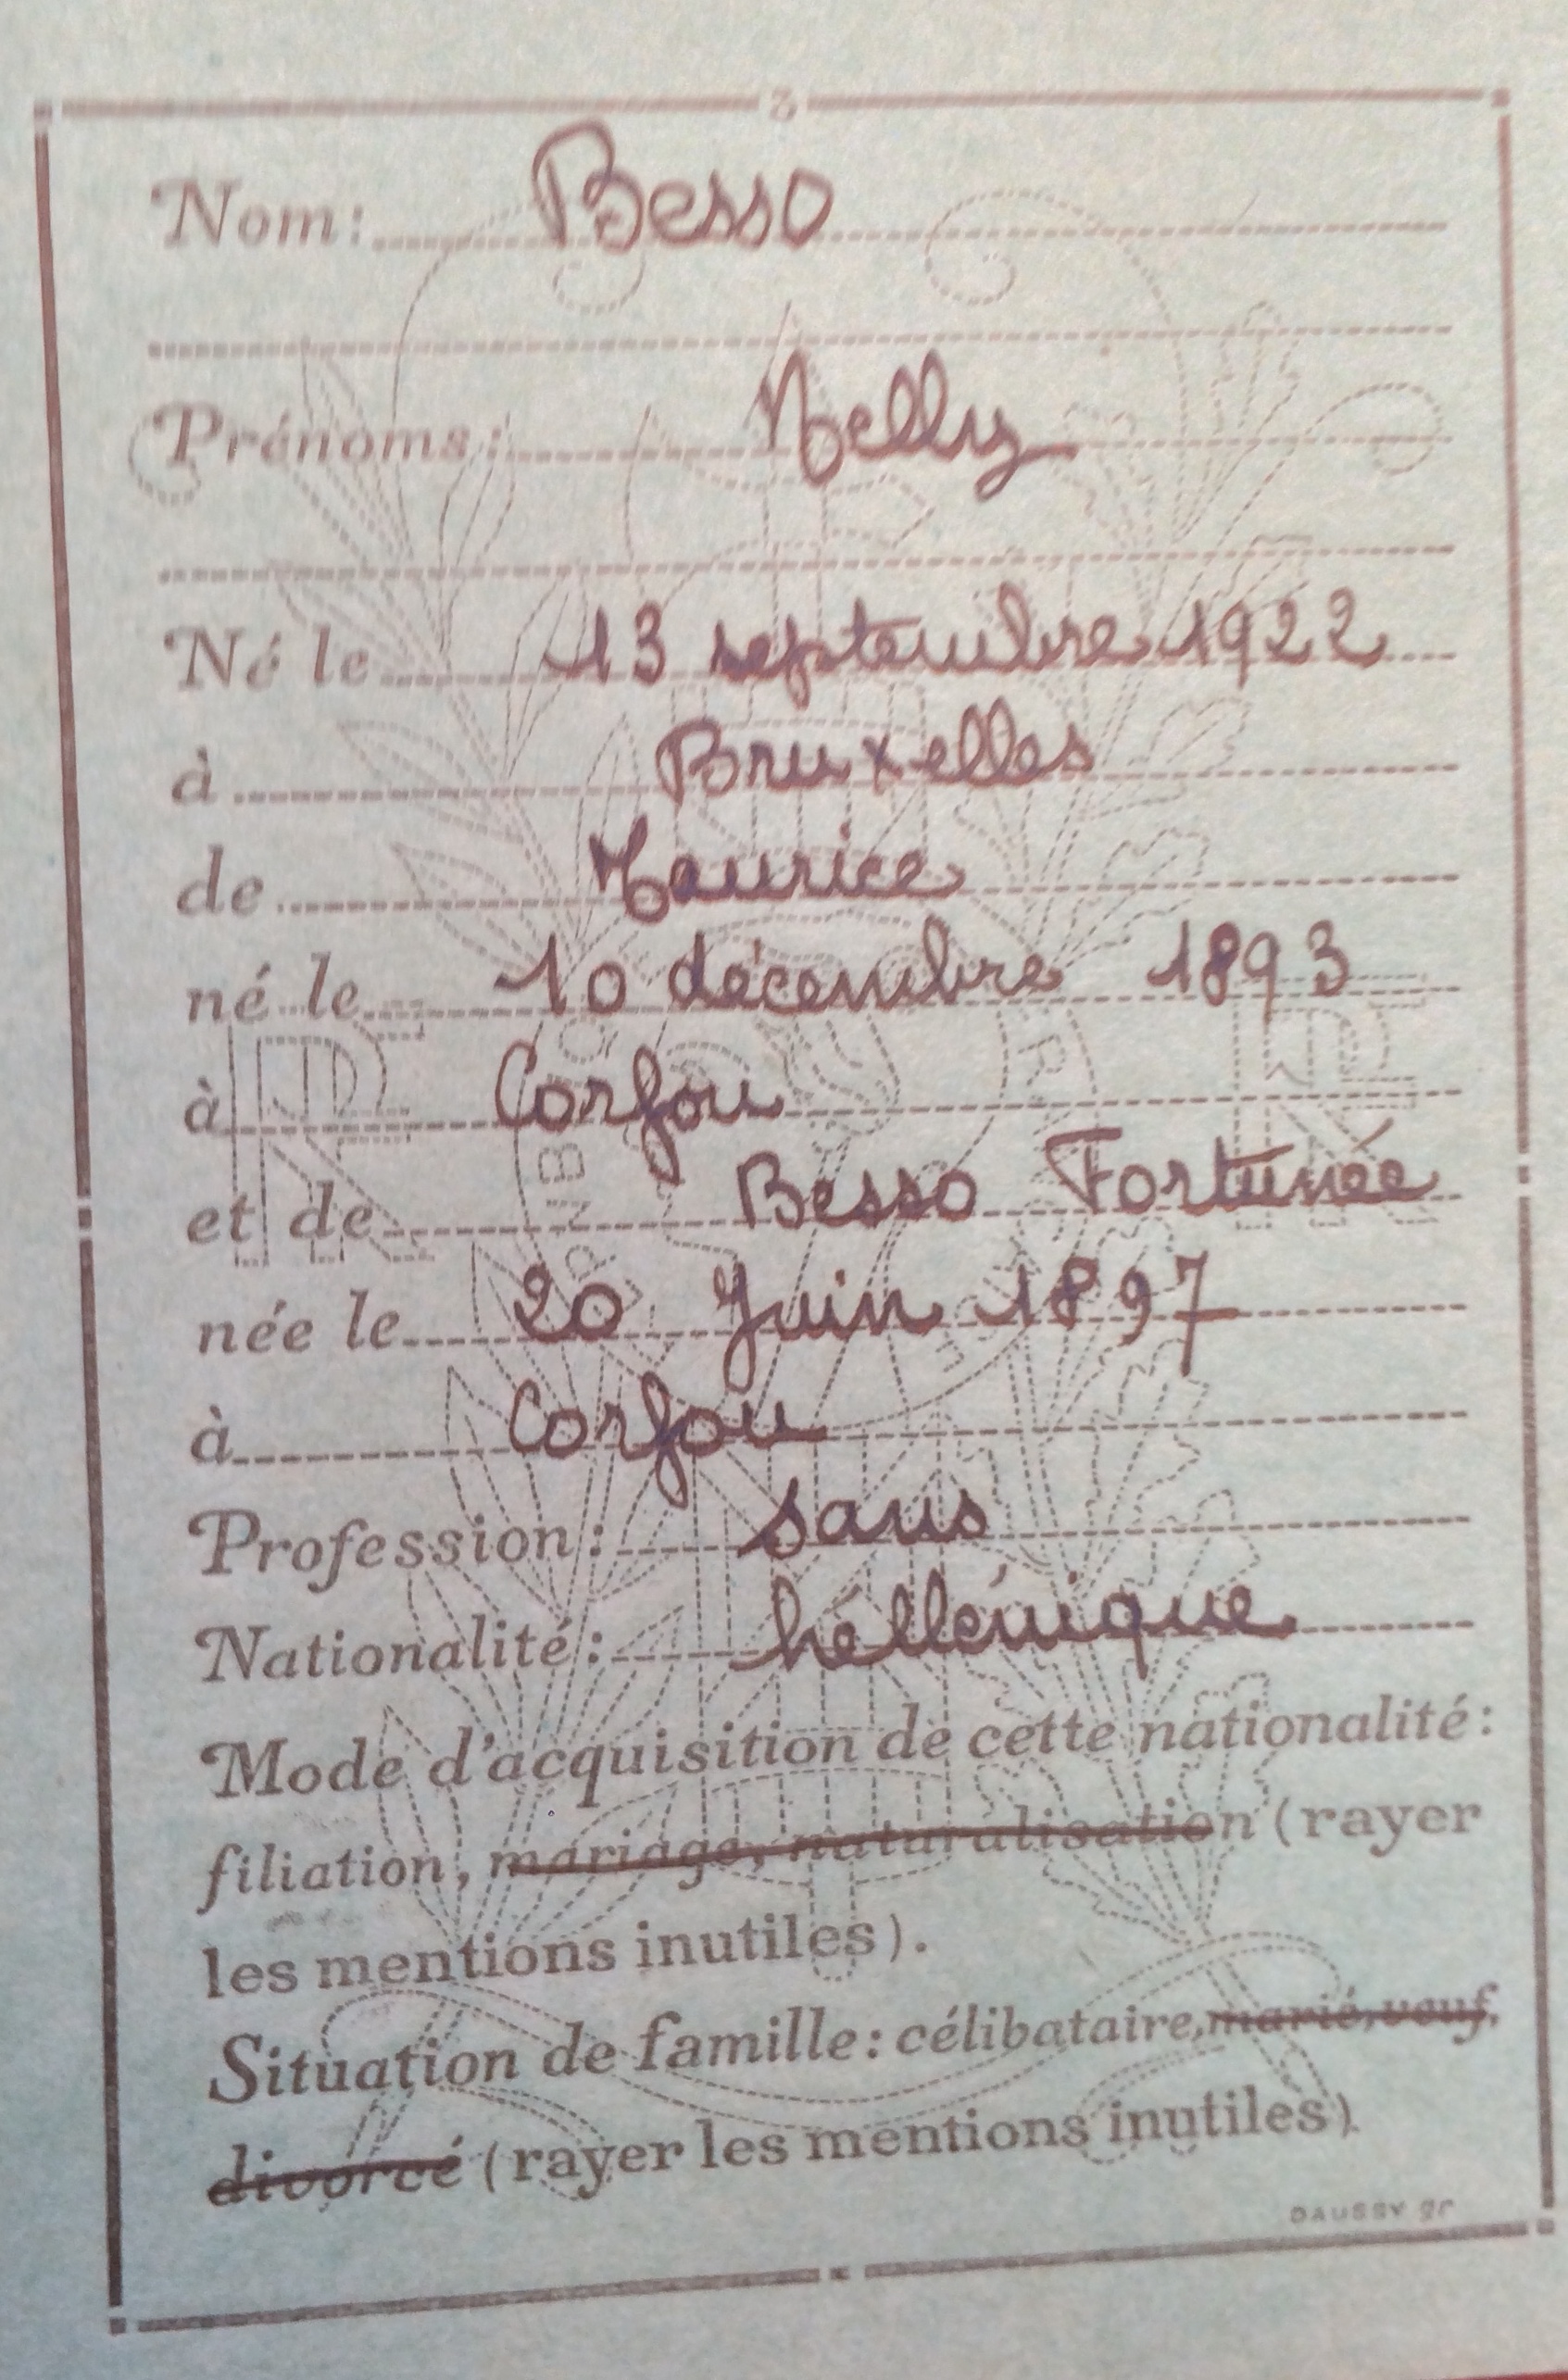 3
Nom: Besso
Prénoms: Nelly
Né le 13 septembre 1922
à Bruxelles
de Maurice
né le 10 décembre 1893
à Corfou
et de Besso Fortunée
née le 20 Juin 1897
à Corfou
Profession: sans
Nationalité: hellénique
Mode d'acquisition de cette nationalité:
filiation, mariage, naturalisation (rayer
les mentions inutiles).
Situation de famille: célibataire, marié, veuf,
divorcé (rayer les mentions inutiles)
DAUSSY gr